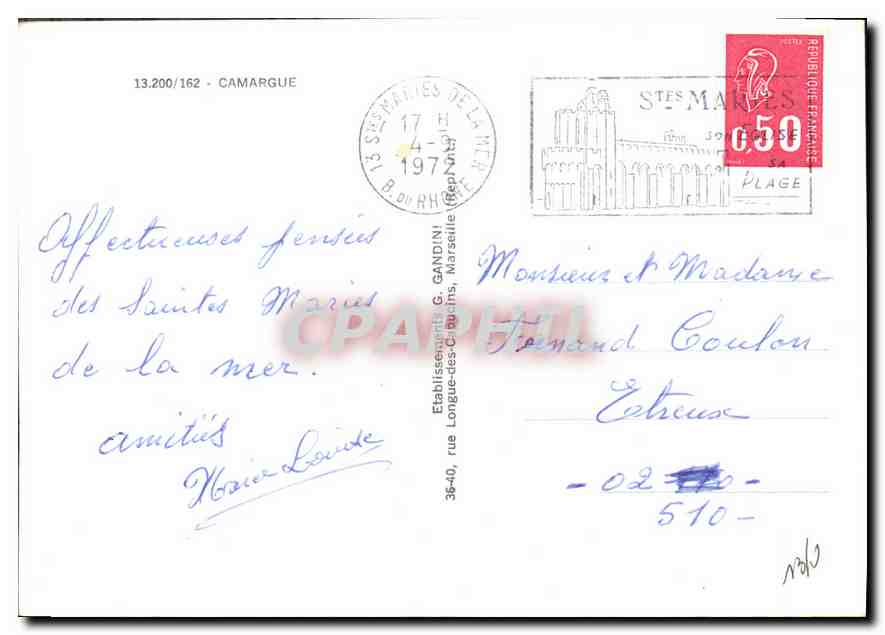 13.200/162 - CAMARGUE
13 STES MARIES DE LA MER
17 H
4-9
1972
B. DU RHONE
STES MARIES
SON EGLISE
SA
PLAGE
POSTES
REPUBLIQUE FRANÇAISE
0,50
Affectueuses pensées
des Saintes Maries
de la mer.
amitiés
Marie Louise
Etablissements G. GANDINI
36-40, rue Longue-des-Capucins, Marseille (Rep. Int.)
CPAPHIL
Monsieur et Madame
Fernand Coulon
Etreux
- 02 -
510 -